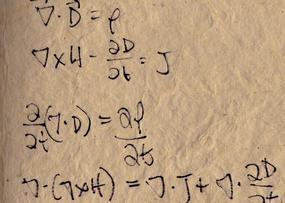 ∇·D⃗ = ρ
∇×H - ∂D/∂t = J
∂/∂t (∇·D) = ∂ρ/∂t
∇·(∇×H) = ∇·J + ∇·∂D/∂t